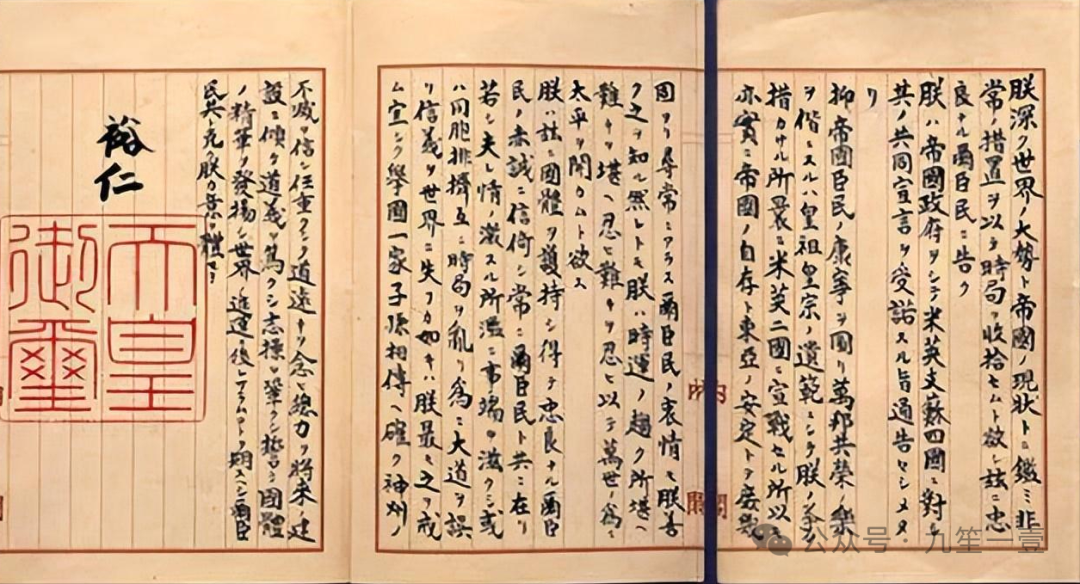 朕深ク世界ノ大勢ト帝國ノ現狀トニ鑑ミ非
常ノ措置ヲ以テ時局ヲ收拾セムト欲シ茲ニ忠
良ナル爾臣民ニ告ク
朕ハ帝國政府ヲシテ米英支蘇四國ニ對シ
其ノ共同宣言ヲ受諾スル旨通告セシメタ
リ
抑帝國臣民ノ康寧ヲ圖リ萬邦共榮ノ樂
ヲ偕ニスルハ皇祖皇宗ノ遺範ニシテ朕ノ拳々
措カサル所曩ニ米英二國ニ宣戰セル所以モ
亦實ニ帝國ノ自存ト東亞ノ安定トヲ庶幾
固ヨリ尋常ニアラス爾臣民ノ衷情モ朕善
ク之ヲ知ル然レトモ朕ハ時運ノ趨ク所堪ヘ
難キヲ堪ヘ忍ヒ難キヲ忍ヒ以テ萬世ノ爲ニ
太平ヲ開カムト欲ス
朕ハ茲ニ國體ヲ護持シ得テ忠良ナル爾臣
民ノ赤誠ニ信倚シ常ニ爾臣民ト共ニ在リ
若シ夫レ情ノ激スル所濫ニ事端ヲ滋クシ或
ハ同胞排擠互ニ時局ヲ亂リ爲ニ大道ヲ誤
リ信義ヲ世界ニ失フカ如キハ朕最モ之ヲ戒
ム宜シク擧國一家子孫相傳ヘ確ク神州ノ
不滅ヲ信シ任重クシテ道遠キヲ念ヒ總力ヲ將來ノ建
設ニ傾ケ道義ヲ篤クシ志操ヲ鞏クシ誓テ國體
ノ精華ヲ發揚シ世界ノ進運ニ後レサラムコトヲ期スヘシ爾臣
民其レ克ク朕カ意ヲ體セヨ
裕仁
天皇
御璽
内閣
公众号·九笙一壹